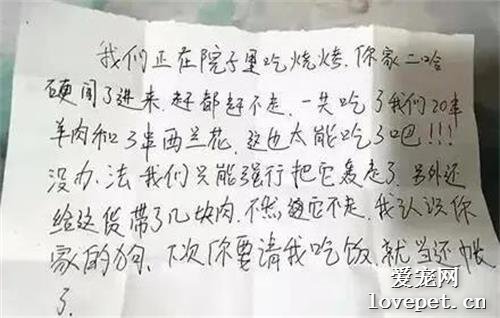 我们正在院子里吃烧烤.你家二哈
硬闯了进来.赶都赶不走.一共吃了我们20串
羊肉和3串西兰花.这也太能吃了吧!!!
没办.法我们只能强行把它轰走了.另外还
给这货带了几块肉.不然撵它不走.我认识你
家的狗.下次你要请我吃饭.就当还帐
了.
爱宠网
lovepet.cn